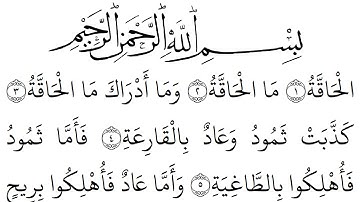 بِسْمِ اللَّهِ الرَّحْمَٰنِ الرَّحِيمِ
الْحَاقَّةُ ۝١ مَا الْحَاقَّةُ ۝٢ وَمَا أَدْرَاكَ مَا الْحَاقَّةُ ۝٣
كَذَّبَتْ ثَمُودُ وَعَادٌ بِالْقَارِعَةِ ۝٤ فَأَمَّا ثَمُودُ
فَأُهْلِكُوا بِالطَّاغِيَةِ ۝٥ وَأَمَّا عَادٌ فَأُهْلِكُوا بِرِيحٍ